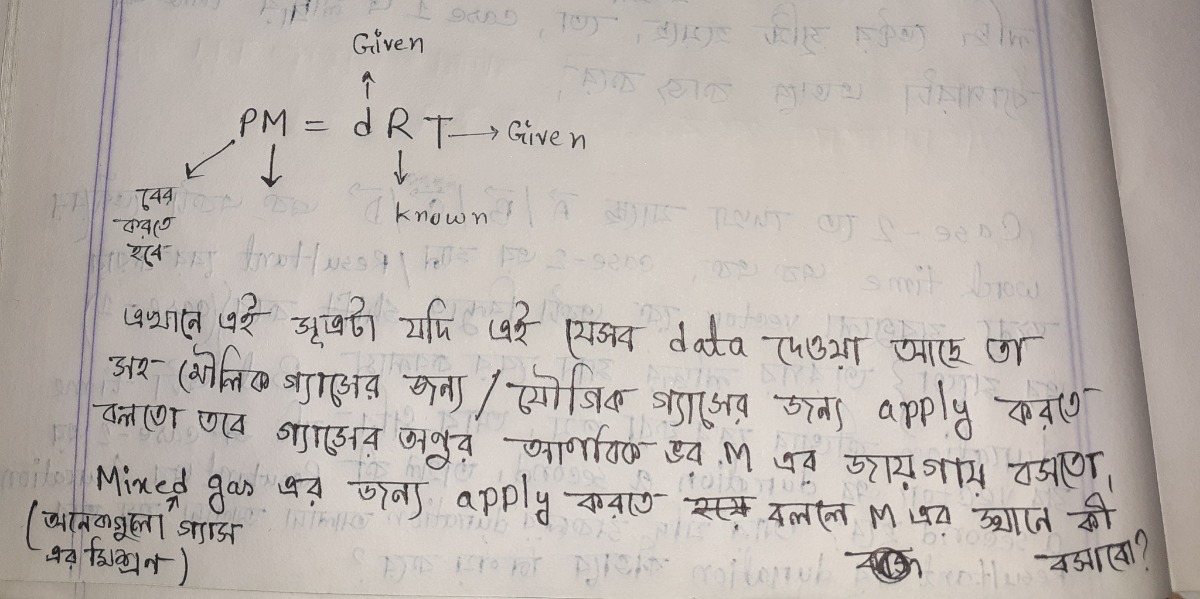 Given
PM = dRT → Given
বের
করতে
হবে
known
এখানে এই সূত্রটা যদি এই যেসব data দেওয়া আছে তা
সহ মৌলিক গ্যাসের জন্য / যৌগিক গ্যাসের জন্য apply করতে
বলতো তবে গ্যাসের অণুর আণবিক ভর M এর জায়গায় বসতো,
Mixed gas এর জন্য apply করতে বললে M এর স্থানে কী
(অনেকগুলো গ্যাস
এর মিশ্রণ)
বসাবো?